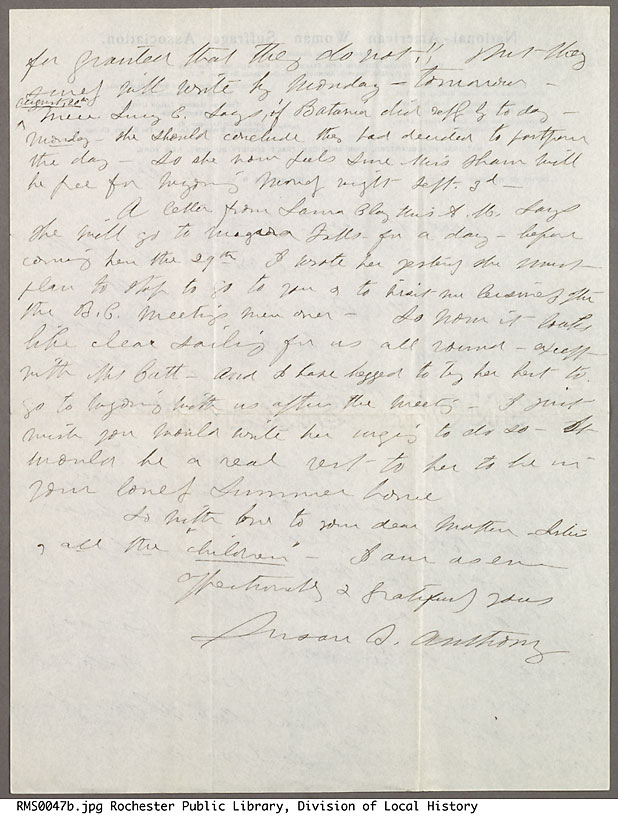 for granted that they do not!! But they
surely will write by Monday - tomorrow -
August, 20th
Miss Lucy E. says if Batavia did not reply to day -
Monday - she should conclude they had decided to postpone
the day - So she now feels sure Miss Shaw will
be free for Wyoming Monday night Sept. 3d -
A letter from Laura Clay this A. M. says
she will go to Niagara Falls for a day - before
coming here the 29th I wrote her yesterday she must
plan to stop to go to you & to visit me leisurely after
the B.C. meetings were over - So now it looks
like clear sailing for us all round - except
with Mrs Catt - and I have begged to try her best to
go to Wyoming with us after the meeting - I just
wish you would write her urging to do so - It
would be a real rest to her to be in
your lovely Summer home
So with love to your dear Mother - Sister
& all the "children" - I am as ever
affectionately & gratefully yours
Susan B. Anthony
National-American Woman Suffrage Association.
RMS0047b.jpg Rochester Public Library, Division of Local History